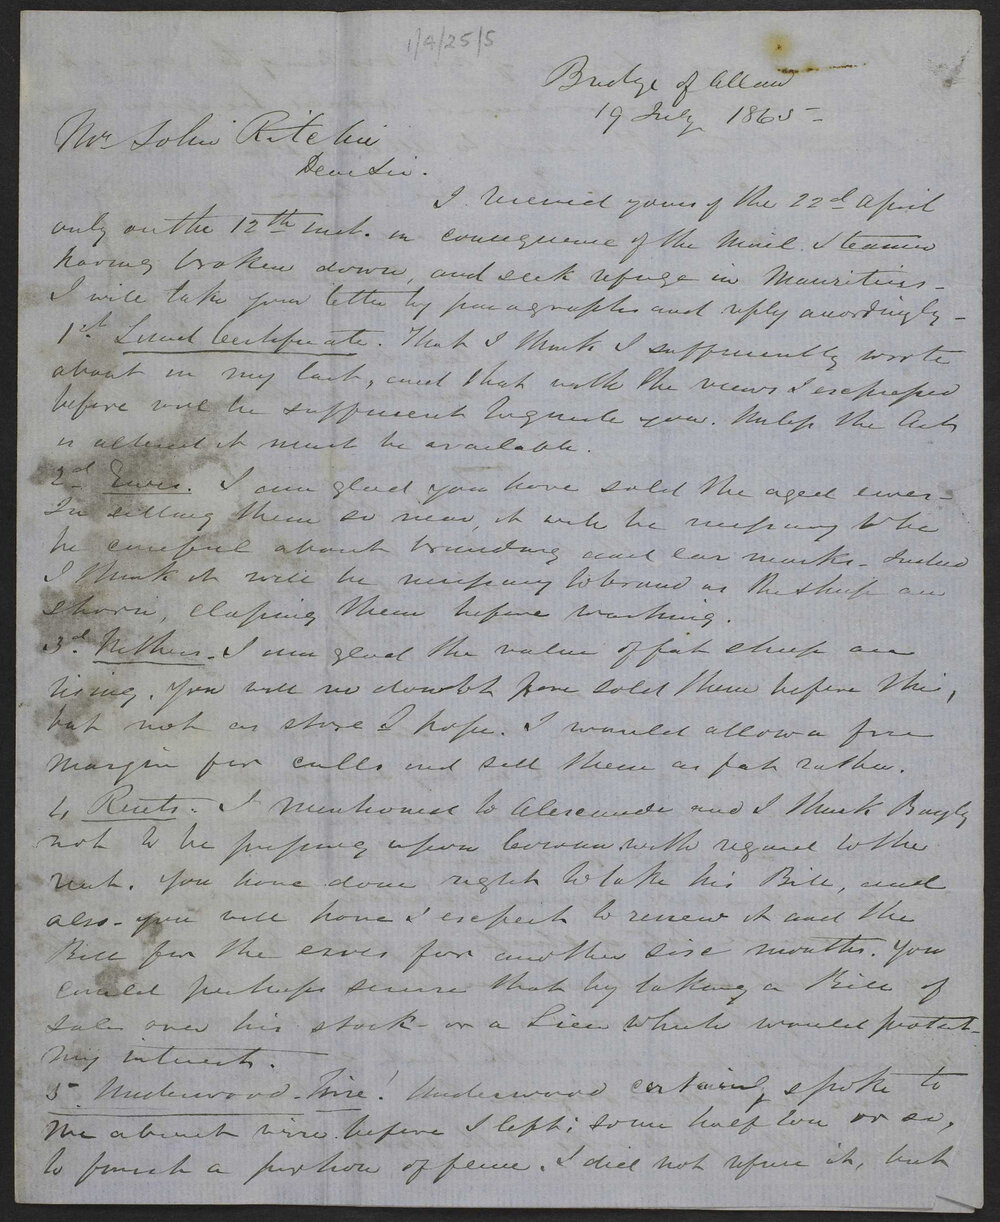 1/4/25/5
Bridge of Allan
19 July 1865
Mr John Ritchie
Dear Sir.
I received yours of the 22d April
only on the 12th inst. in consequence of the Mail Steamer
having broken down, and seek refuge in Mauritius-
I will take your letter by paragraphs and reply accordingly-
1st. Land Certificate. That I think I sufficiently wrote
about in my last, and that with the views I expressed
before will be sufficient to guide you. Unless the Act
is altered it must be available.
2d Ewes. I am glad you have sold the aged ewes-
In selling them so near, it will be necessary to be
be careful about branding and ear marks- Indeed
I think it will be necessary to brand as the sheep are
shorn, classing them before washing.
3d. Wethers- I am glad the value of fat sheep are
rising. You will no doubt have sold them before this,
but not as store I hope. I would allow a fine
margin for culls and sell them as fat rather.
4 Rents- I mentioned to Alexander and I think Bayly
not to be pressing upon Cowan with regard to the
rent. You have done right to take his Bill, and
also- you will have I expect to renew it and the
Bill for the ewes for another six months. You
could perhaps secure that by taking a Bill of
Sale over his stock- or a Lien which would protect
my interest.
5 Underwood- Wire! Underwood certainly spoke to
me about wire before I left; some half ton or so,
to finish a portion of fence. I did not refuse it, but